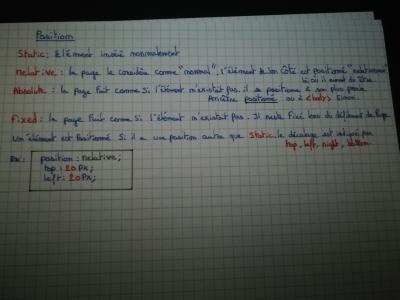 Position
Static: Elément inséré normalement
Relative: la page le considère comme "normal", l'élément de son côté est positionné "relativement"
là où il aurait du être.
Absolute: la page fait comme si l'élément n'existait pas. il se positionne à son plus proche
Ancêtre positionné ou à <body> sinon.
Fixed: la page fait comme si l'élément n'existait pas. Il reste fixé lors du défilement de page
Un élément est positionné si il a une position autre que static, le décalage est indiqué par
top, left, right, bottom
Ex: position: relative;
top: 20px;
left: 20px;